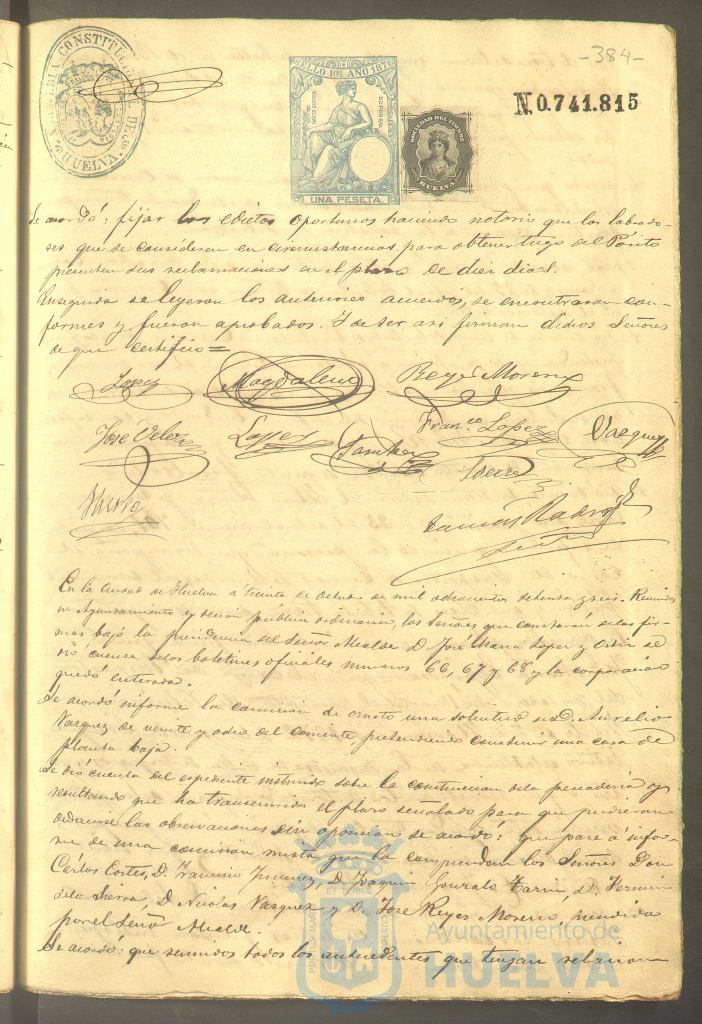 -384-
ALCALDIA CONSTITUCIONAL DE
HUELVA
SELLO 10º AÑO 1876
UNA PESETA
SOCIEDAD DEL TIMBRE
HUELVA
N. 0.741.815
Se acordó: fijar los edictos oportunos haciendo notorio que los labrado-
res que se consideren en circunstancias para obtener trigo del Pósito
presenten sus reclamaciones en el plazo de diez dias.
Enseguida se leyeron los anteriores acuerdos, se encontraron con-
formes y fueron aprobados. Y de ser asi firman dichos Señores
de que certifico =
Lopez Magdalena Reyes Moreno
José Velez Lopez Sanchez Franco Lopez Vazquez
Torres
Ramon
En la Ciudad de Huelva á treinta de Octubre de mil ochocientos setenta y seis. Reunidos
en Ayuntamiento y sesion pública ordinaria, los Señores que constarán de las fir-
mas bajo la presidencia del Señor Alcalde D. José Maria Lopez y se
dió cuenta de los boletines oficiales numeros 66, 67 y 68 y la corporacion
quedó enterada.
Se acordó informe la comision de ornato una solicitud de D. Aurelio
Vazquez de veinte y ocho del corriente pretendiendo construir una casa de
planta baja.
Se dió cuenta del espediente instruido sobre la construccion de la pescaderia y
resultando que ha transcurrido el plazo señalado para que pudieran
deducirse las observaciones sin oposicion se acordó: que pase á infor-
me de una comision mista que la compondran los Señores Don
Cárlos Cortes, D. Francisco Jimenez, D. Joaquin Gonzalo Tarin, D. Fermin
de la Sierra, D. Nicolas Vazquez y D. José Reyes Moreno, presidida
por el Señor Alcalde.
Se acordó: que reunidos todos los antecedentes que tengan relacion
Ayuntamiento de
HUELVA